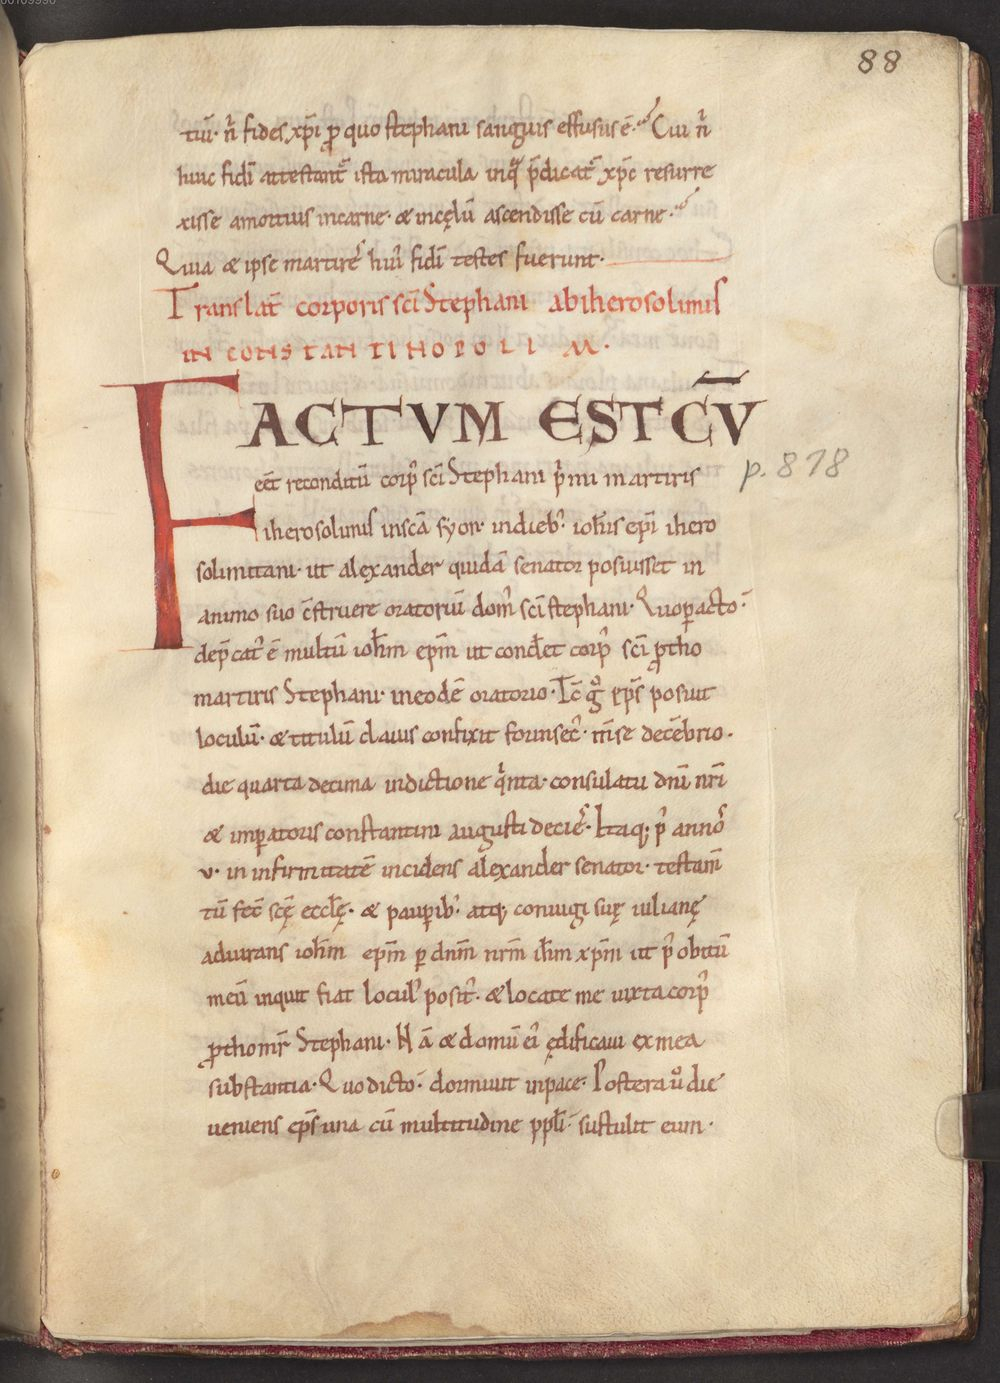 00109990
88
tiū· ñ fides xp̄i ꝓ quo stephani sanguis effusus ē· Cui ñ
huic fidī attestant̄ ista miracula inq̄ p̄dicat̄ xp̄c resurre
xisse amortuis incarne· & incęlū ascendisse cū carne·
Quia & ipse martirẽ hui᾽ fidī testes fuerunt·
Translat̄ corporis sc̄i Stephani abiherosolimis
IN CONSTANTINOPOLIM·
FACTVM EST CV̄
eēt reconditū corp᾽ sc̄i Stephani p̄mi martiris
iherosolimis insc̄a syon· indieb᾽· ioh̄is ep̄i ihero
solimitani· ut alexander quidā senator posuisset in
animo suo c̄struere oratoriū dom᾽ sc̄i stephani· Quo ꝑacto·
dep̄cat᾽ ē multū ioh̄m ep̄m ut cond̄et corp᾽ sc̄i ꝓtho
martiris Stephani· ineodē oratorio· Tc̄ g᾽ ep̄s posuit
loculū· & titulū clauis confixit forinsec᾽· m̄se decēbrio·
die quarta decima indictione q̄nta· consulatu dn̄i nr̄i
& imꝑatoris constantini augusti deciēs· Itaq; p᾽ annos
·v· in infirmitatē incidens alexander senator· testam̄
tū fec̄ sc̄ę eccl̄ę· & pauꝑib᾽· atq; coniugi suę iulianę
adiurans ioh̄m ep̄m ꝑ dn̄m nr̄m ih̄m xp̄m ut p᾽ obitū
meū inquit fiat locul᾽ posit᾽· & locate me iuxta corp᾽
ꝓthom̄r Stephani· Nā & domū ei᾽ ędificaui ex mea
substantia· Quo dicto· dormiuit inpace· Postera ū die
ueniens ep̄s una cū multitudine ppl̄i· sustulit eum·
p. 878